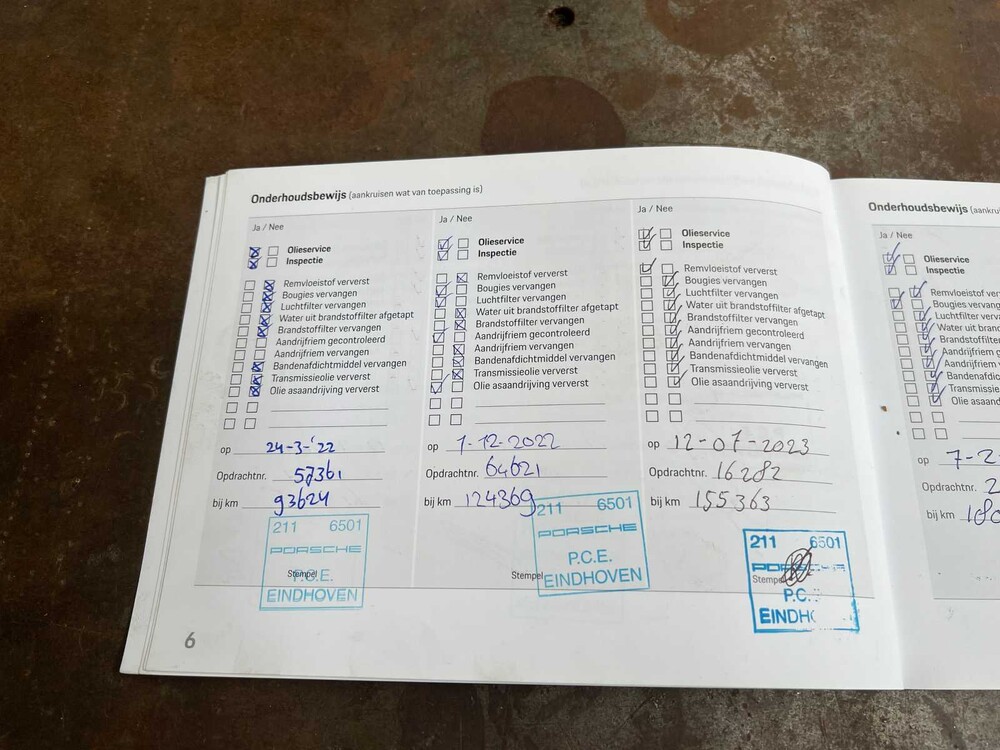 Onderhoudsbewijs (aankruisen wat van toepassing is)
Ja / Nee
Olieservice
Inspectie
Remvloeistof ververst
Bougies vervangen
Luchtfilter vervangen
Water uit brandstoffilter afgetapt
Brandstoffilter vervangen
Aandrijfriem gecontroleerd
Aandrijfriem vervangen
Bandenafdichtmiddel vervangen
Transmissieolie ververst
Olie asaandrijving ververst
op 24-3-'22
Opdrachtnr. 57361
bij km 93624
211 6501
PORSCHE
Stempel
P.C.E.
EINDHOVEN
Ja / Nee
Olieservice
Inspectie
Remvloeistof ververst
Bougies vervangen
Luchtfilter vervangen
Water uit brandstoffilter afgetapt
Brandstoffilter vervangen
Aandrijfriem gecontroleerd
Aandrijfriem vervangen
Bandenafdichtmiddel vervangen
Transmissieolie ververst
Olie asaandrijving ververst
op 1-12-2022
Opdrachtnr. 64621
bij km 124369
211 6501
PORSCHE
P.C.E.
Stempel
EINDHOVEN
Ja / Nee
Olieservice
Inspectie
Remvloeistof ververst
Bougies vervangen
Luchtfilter vervangen
Water uit brandstoffilter afgetapt
Brandstoffilter vervangen
Aandrijfriem gecontroleerd
Aandrijfriem vervangen
Bandenafdichtmiddel vervangen
Transmissieolie ververst
Olie asaandrijving ververst
op 12-07-2023
Opdrachtnr. 16282
bij km 155363
211 6501
PORSCHE
Stempel
P.C.
EINDH
6
Onderhoudsbewijs (aankru
Ja / Nee
Olieservice
Inspectie
Remvloeistof ver
Bougies vervang
Luchtfilter verv
Water uit brand
Brandstoffilter
Aandrijfriem g
Aandrijfriem v
Bandenafdich
Transmissieo
Olie asaandri
op 7-2
Opdrachtnr. 2
bij km 180